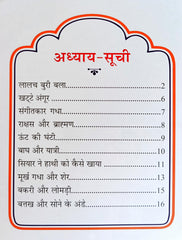 अध्याय-सूची
लालच बुरी बला..............................................2
खट्टे अंगूर....................................................6
संगीतकार गधा..............................................7
राक्षस और ब्राह्मण..........................................8
ऊंट की घंटी..................................................9
बाघ और यात्री..............................................10
सियार ने हाथी को कैसे खाया..........................11
मूर्ख गधा और शेर..........................................13
बकरी और लोमड़ी..........................................15
बत्तख और सोने के अंडे..................................16